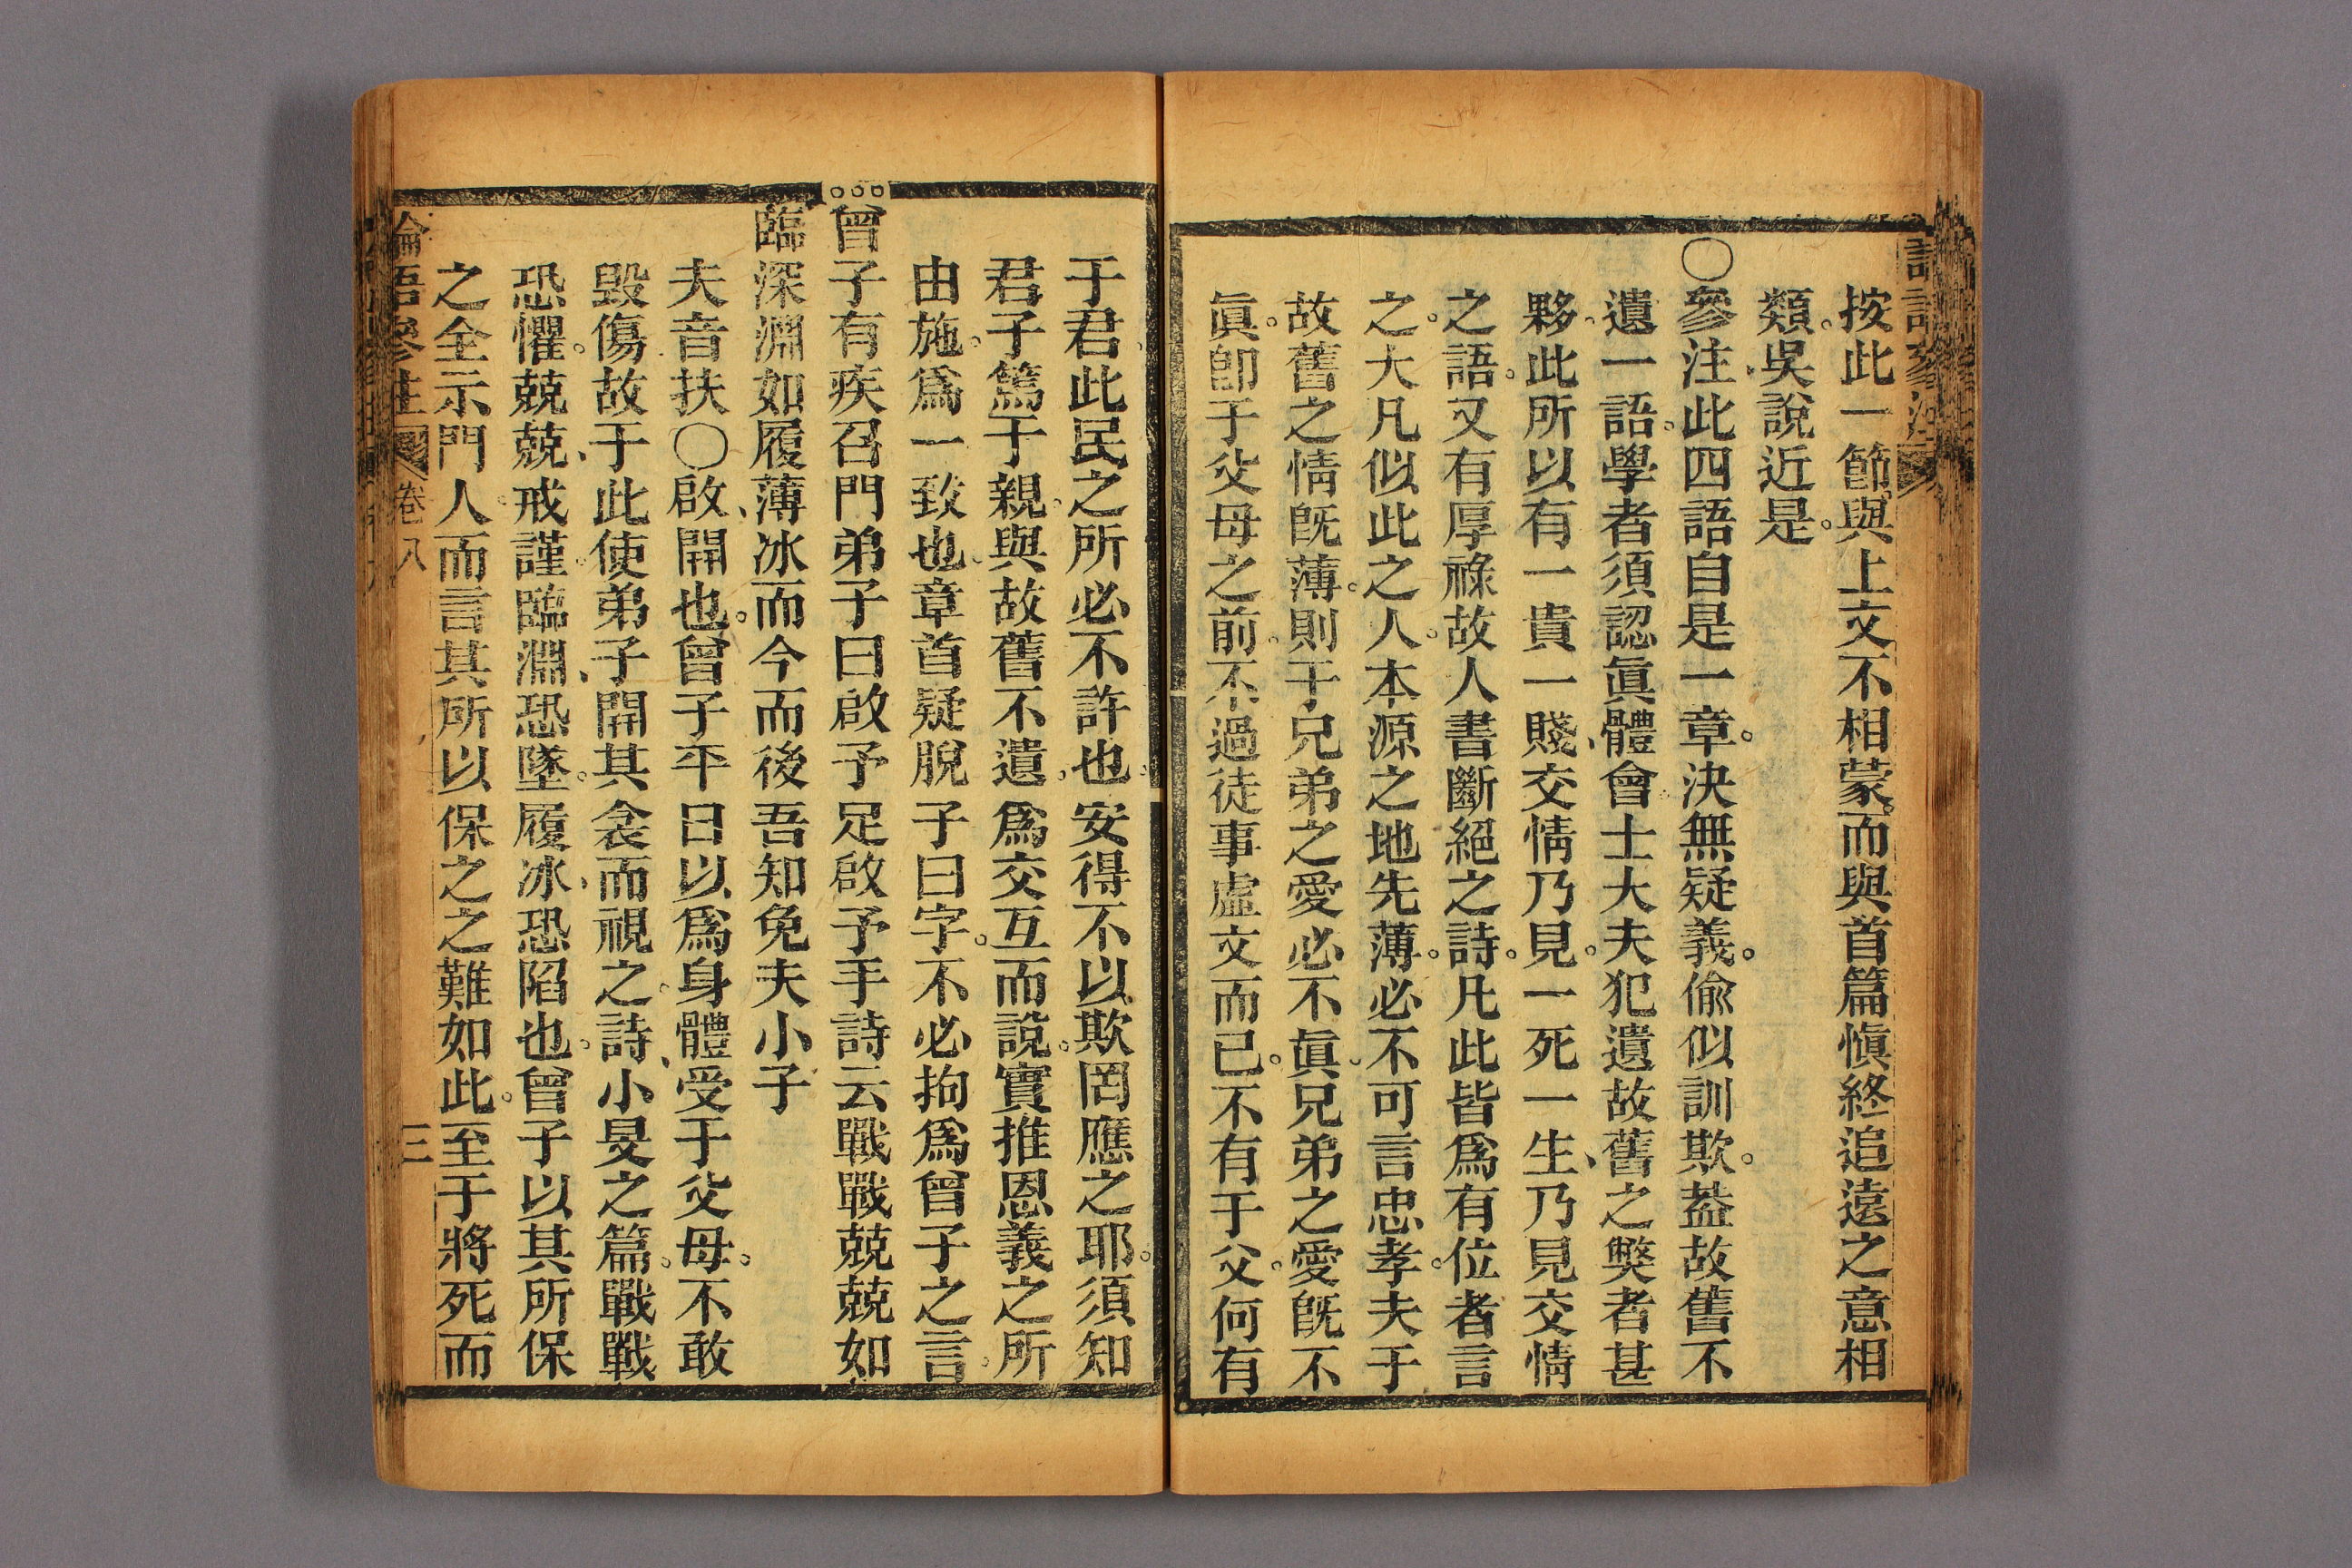 按此一節與上文不相蒙。而與首篇愼終追遠之意相
類。吳說近是。
○參注、此四語自是一章。決無疑義。偷似訓欺。葢故舊不
遺一語。學者須認眞體會。士大夫犯遺故舊之獘者甚
夥。此所以有一貴一賤、交情乃見。一死一生、乃見交情
之語。又有厚祿故人書斷絕之詩。凡此皆爲有位者言
之。大凡似此之人。本源之地先薄。必不可言忠孝。夫于
故舊之情旣薄。則于兄弟之愛必不眞、兄弟之愛旣不
眞。卽于父母之前。不過徒事虛文而已。不有于父。何有
于君、此民之所必不許也。安得不以欺罔應之耶。須知
君子篤于親。與故舊不遺、爲交互而說。實推恩義之所
由施。爲一致也。章首疑脫子曰字。不必拘爲曾子之言。
曾子有疾召門弟子曰啟予足啟予手詩云戰戰兢兢如
臨深淵如履薄冰而今而後吾知免夫小子
夫音扶○啟、開也。曾子平日以爲身體受于父母。不敢
毀傷故于此使弟子開其衾而視之。詩、小旻之篇。戰戰
恐懼。兢兢、戒謹。臨淵、恐墜。履冰、恐陷也。曾子以其所保
之全示門人。而言其所以保之之難如此。至于將死而
論語參注 卷八 三